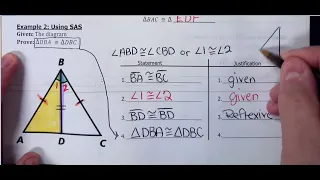 △BAC ≅ △ EDF
Example 2: Using SAS
Given: The diagram
Prove: △DBA ≅ △DBC
∠ABD ≅ ∠CBD or ∠1 ≅ ∠2
Statement Justification
1. BA ≅ BC given
2. ∠1 ≅ ∠2 Given
3. BD ≅ BD Reflexive
4. △DBA ≅ △DBC 4.
B
1 2
A D C